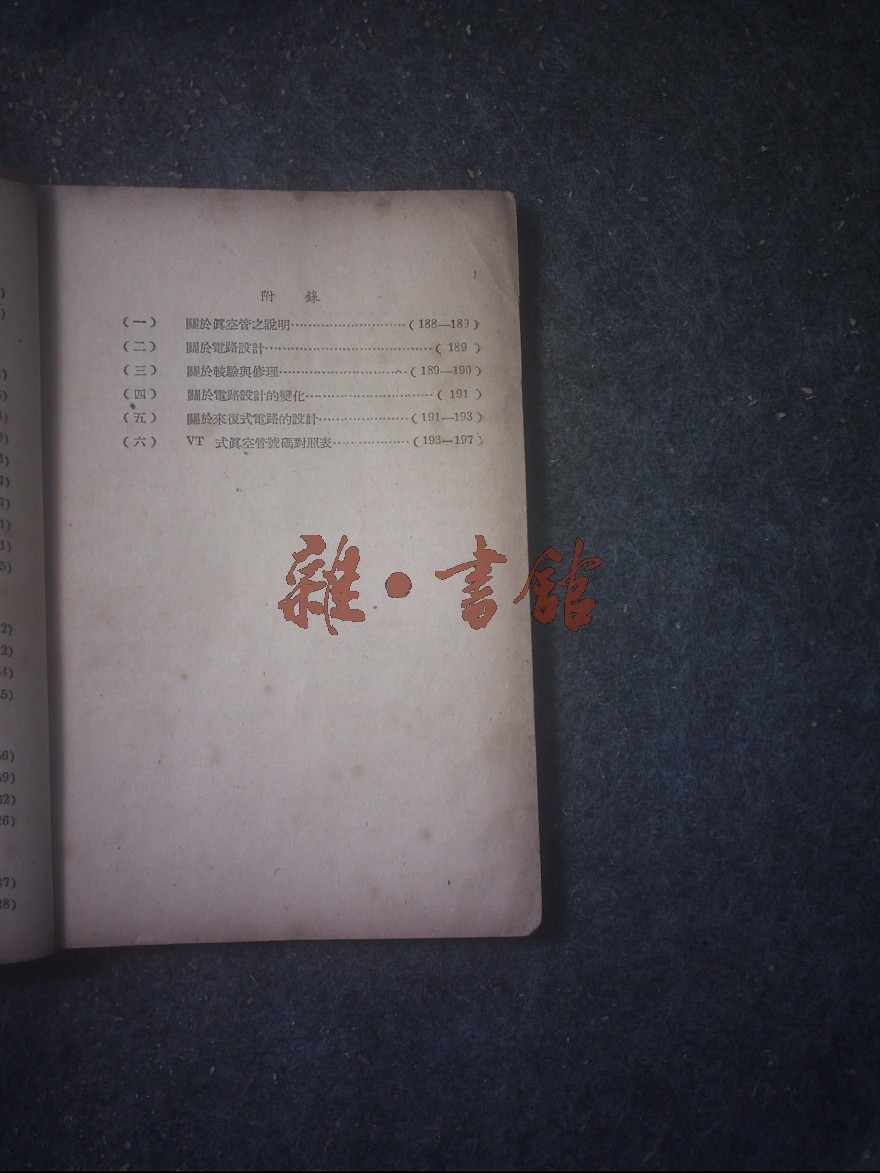 附 錄
(一) 關於眞空管之說明………………………(188—189)
(二) 關於電路設計……………………………………( 189 )
(三) 關於較驗與修理…………………………(189—190)
(四) 關於電路設計的變化…………………………( 191 )
(五) 關於來復式電路的設計…………………(191—193)
(六) VT 式眞空管號碼對照表………………(193—197)
雜·書館